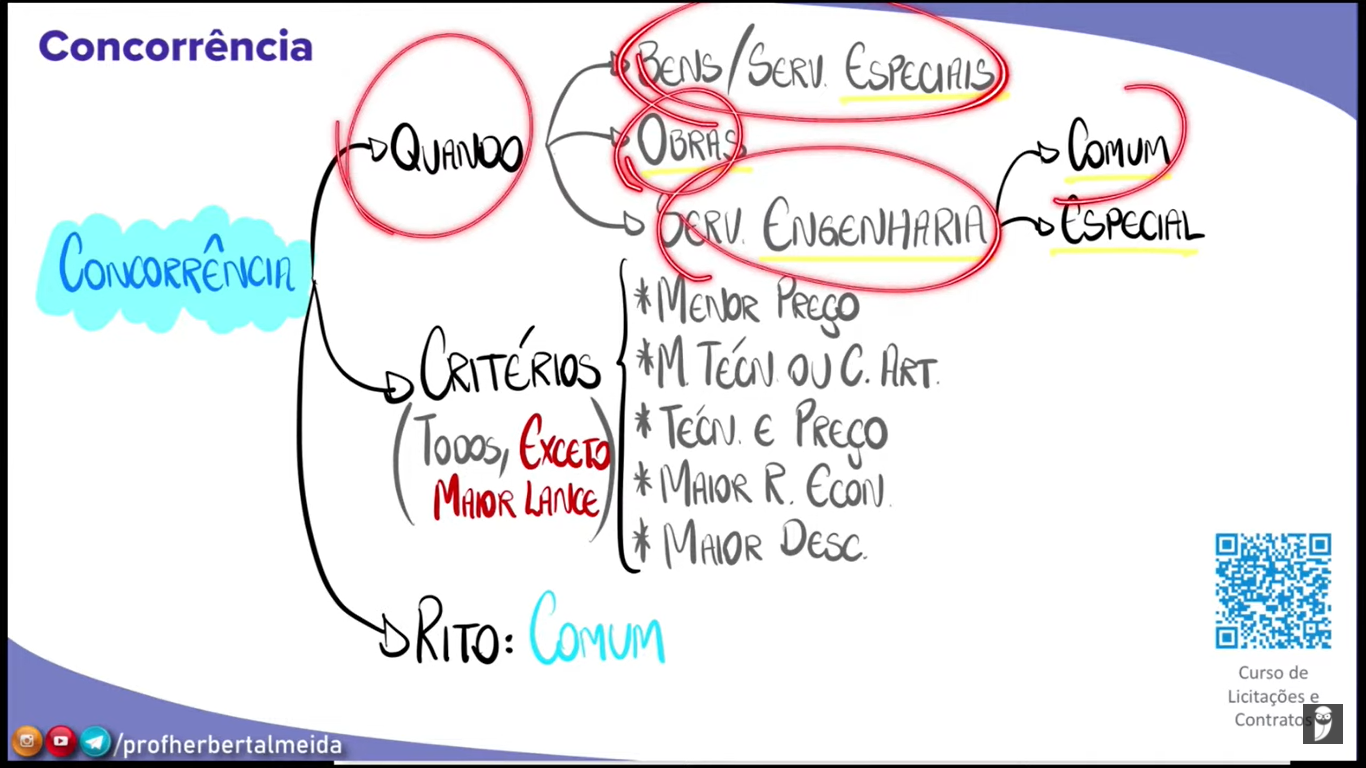 Concorrência
CONCORRÊNCIA
QUANDO
BENS/SERV. ESPECIAIS
OBRAS
SERV. ENGENHARIA
COMUM
ESPECIAL
CRITÉRIOS
(TODOS, EXCETO
MAIOR LANCE)
*MENOR PREÇO
*M. TÉCN. OU C. ART.
* TÉCN. E PREÇO
* MAIOR R. ECON.
* MAIOR DESC.
RITO: COMUM
Curso de
Licitações e
Contratos
/profherbertalmeida